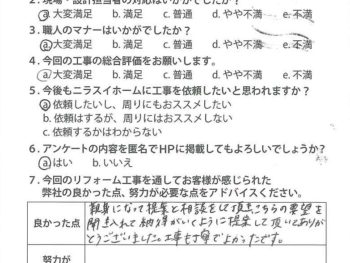 2.現場・設計担当者の対応はいかがでしたか?
a.大変満足 b.満足 c.普通 d.やや不満 e.不満
3.職人のマナーはいかがでしたか?
a.大変満足 b.満足 c.普通 d.やや不満 e.不満
4.今回の工事の総合評価をお願いします。
a.大変満足 b.満足 c.普通 d.やや不満 e.不満
5.今後もニラスイホームに工事を依頼したいと思われますか?
a.依頼したいし、周りにもおススメしたい
b.依頼はするが、周りにはおススメしない
c.依頼するかはわからない
6.アンケートの内容を匿名でHPに掲載してもよろしいでしょうか?
a.はい b.いいえ
7.今回のリフォーム工事を通してお客様が感じられた
弊社の良かった点、努力が必要な点をアドバイスください。
良かった点
親身になって提案と相談をして頂きこちらの要望を
聞き入れて納得がいくように提案して頂いてありが
とうございました。工事も丁寧でよかったです。
努力が